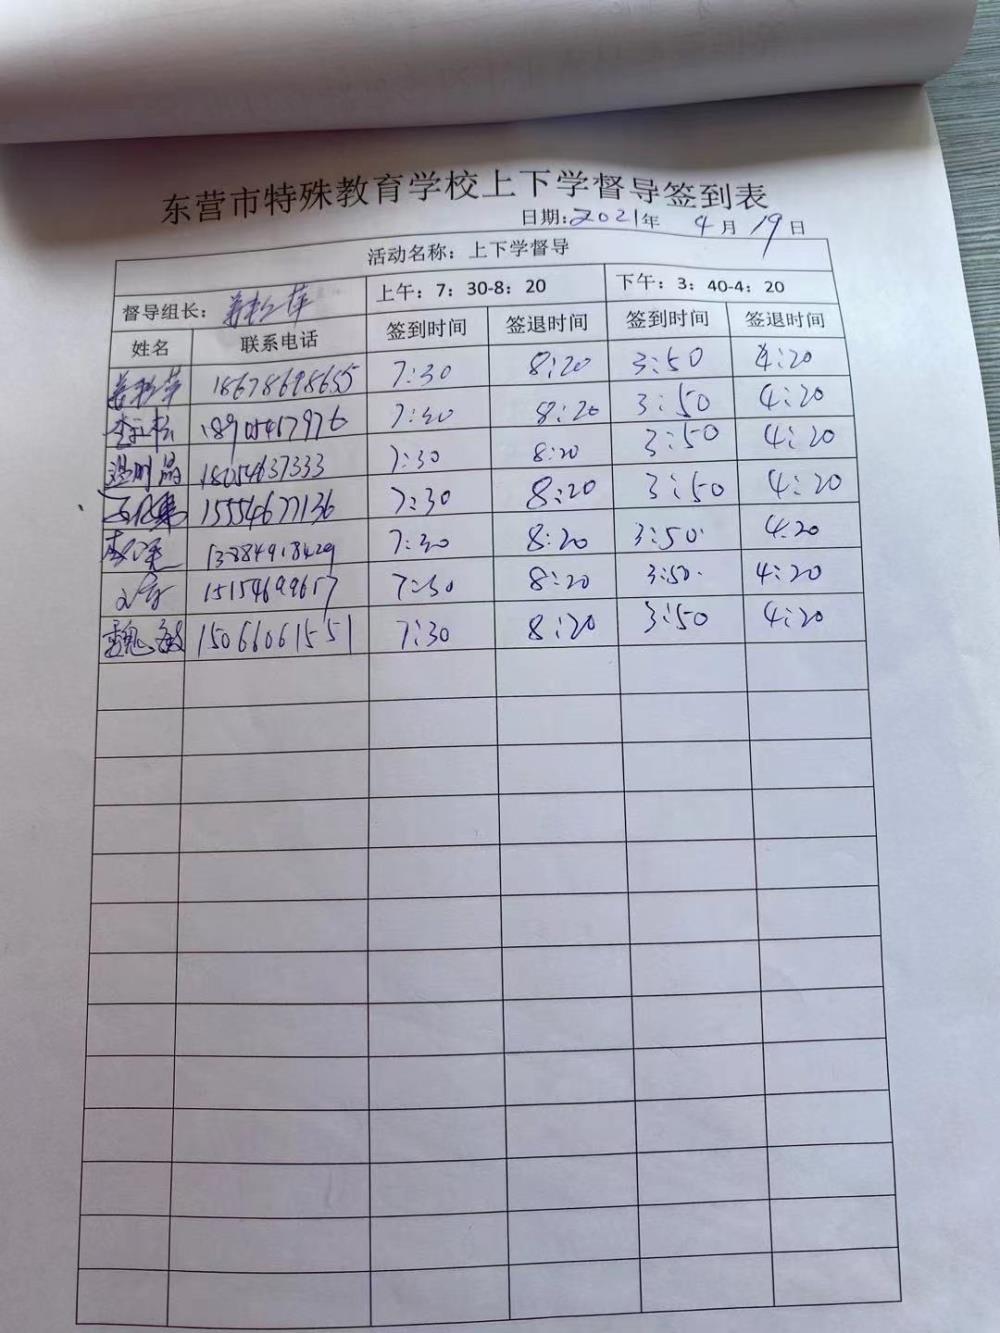 东营市特殊教育学校上下学督导签到表
日期:2021年 4月19日
活动名称：上下学督导
督导组长： 上午：7：30-8：20 下午：3：40-4：20
姓名 联系电话 签到时间 签退时间 签到时间 签退时间
18678698655 7:30 8:20 3:50 4:20
7:30 8:20 3:50 4:20
18054637333 7:30 8:20 3:50 4:20
15554677136 7:30 8:20 3:50 4:20
13884918429 7:30 8:20 3:50 4:20
15154699617 7:30 8:20 3:50 4:20
魏敏 15066061551 7:30 8:20 3:50 4:20